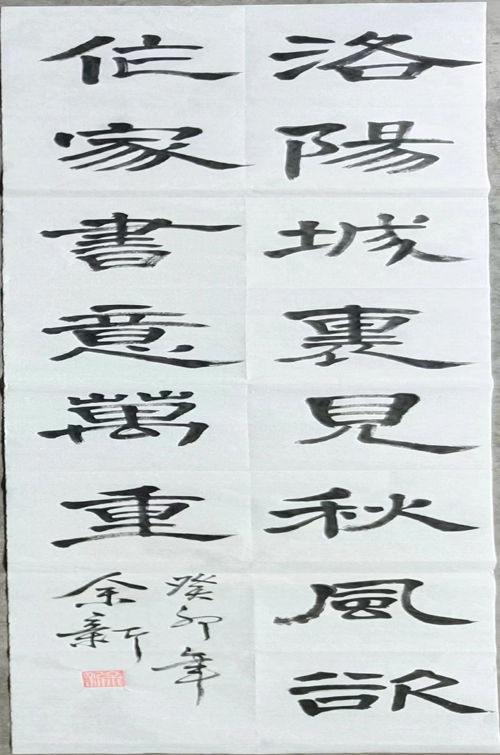 洛陽城裏見秋風欲
作家書意萬重
癸卯年
余新